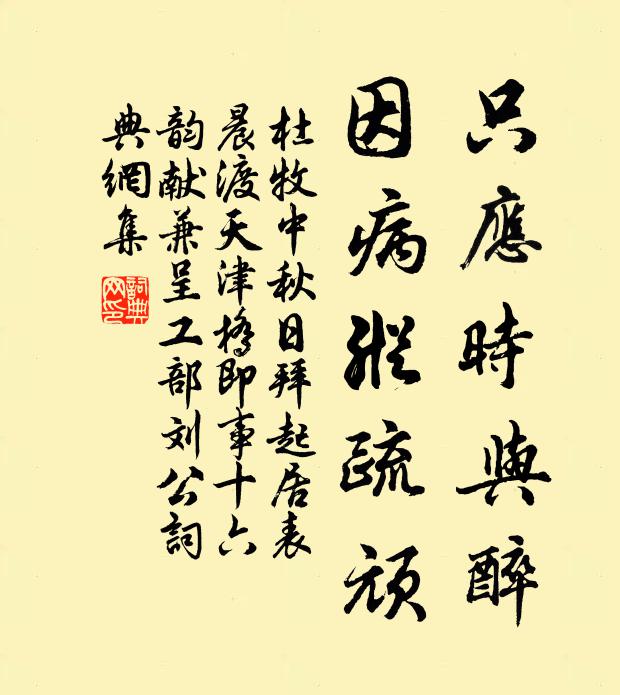 只應時與醉
因病縱疏頑
杜牧中秋日拜起居表
晨渡天津橋即事十六
韵献兼呈工部刘公詞
典網集
詞典網印